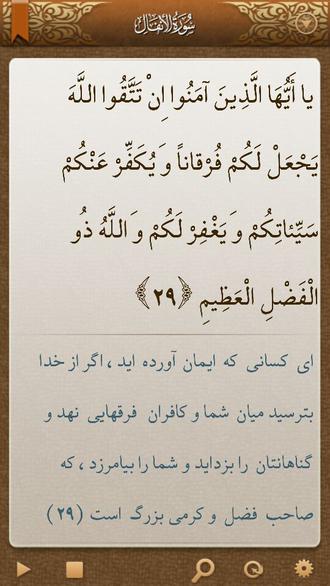 سُورَةُ الأَنفَال
يا أَيُّهَا الَّذِينَ آمَنُوا اِنْ تَتَّقُوا اللَّهَ
يَجْعَلْ لَكُمْ فُرْقاناً وَ يُكَفِّرْ عَنْكُمْ
سَيِّئاتِكُمْ وَ يَغْفِرْ لَكُمْ وَ اللَّهُ ذُو
الْفَضْلِ الْعَظِيمِ ﴿۲۹﴾
ای کسانی که ایمان آورده اید ، اگر از خدا
بترسید میان شما و کافران فرقهایی نهد و
گناهانتان را بزداید و شما را بیامرزد ، که
صاحب فضل و کرمی بزرگ است (۲۹)